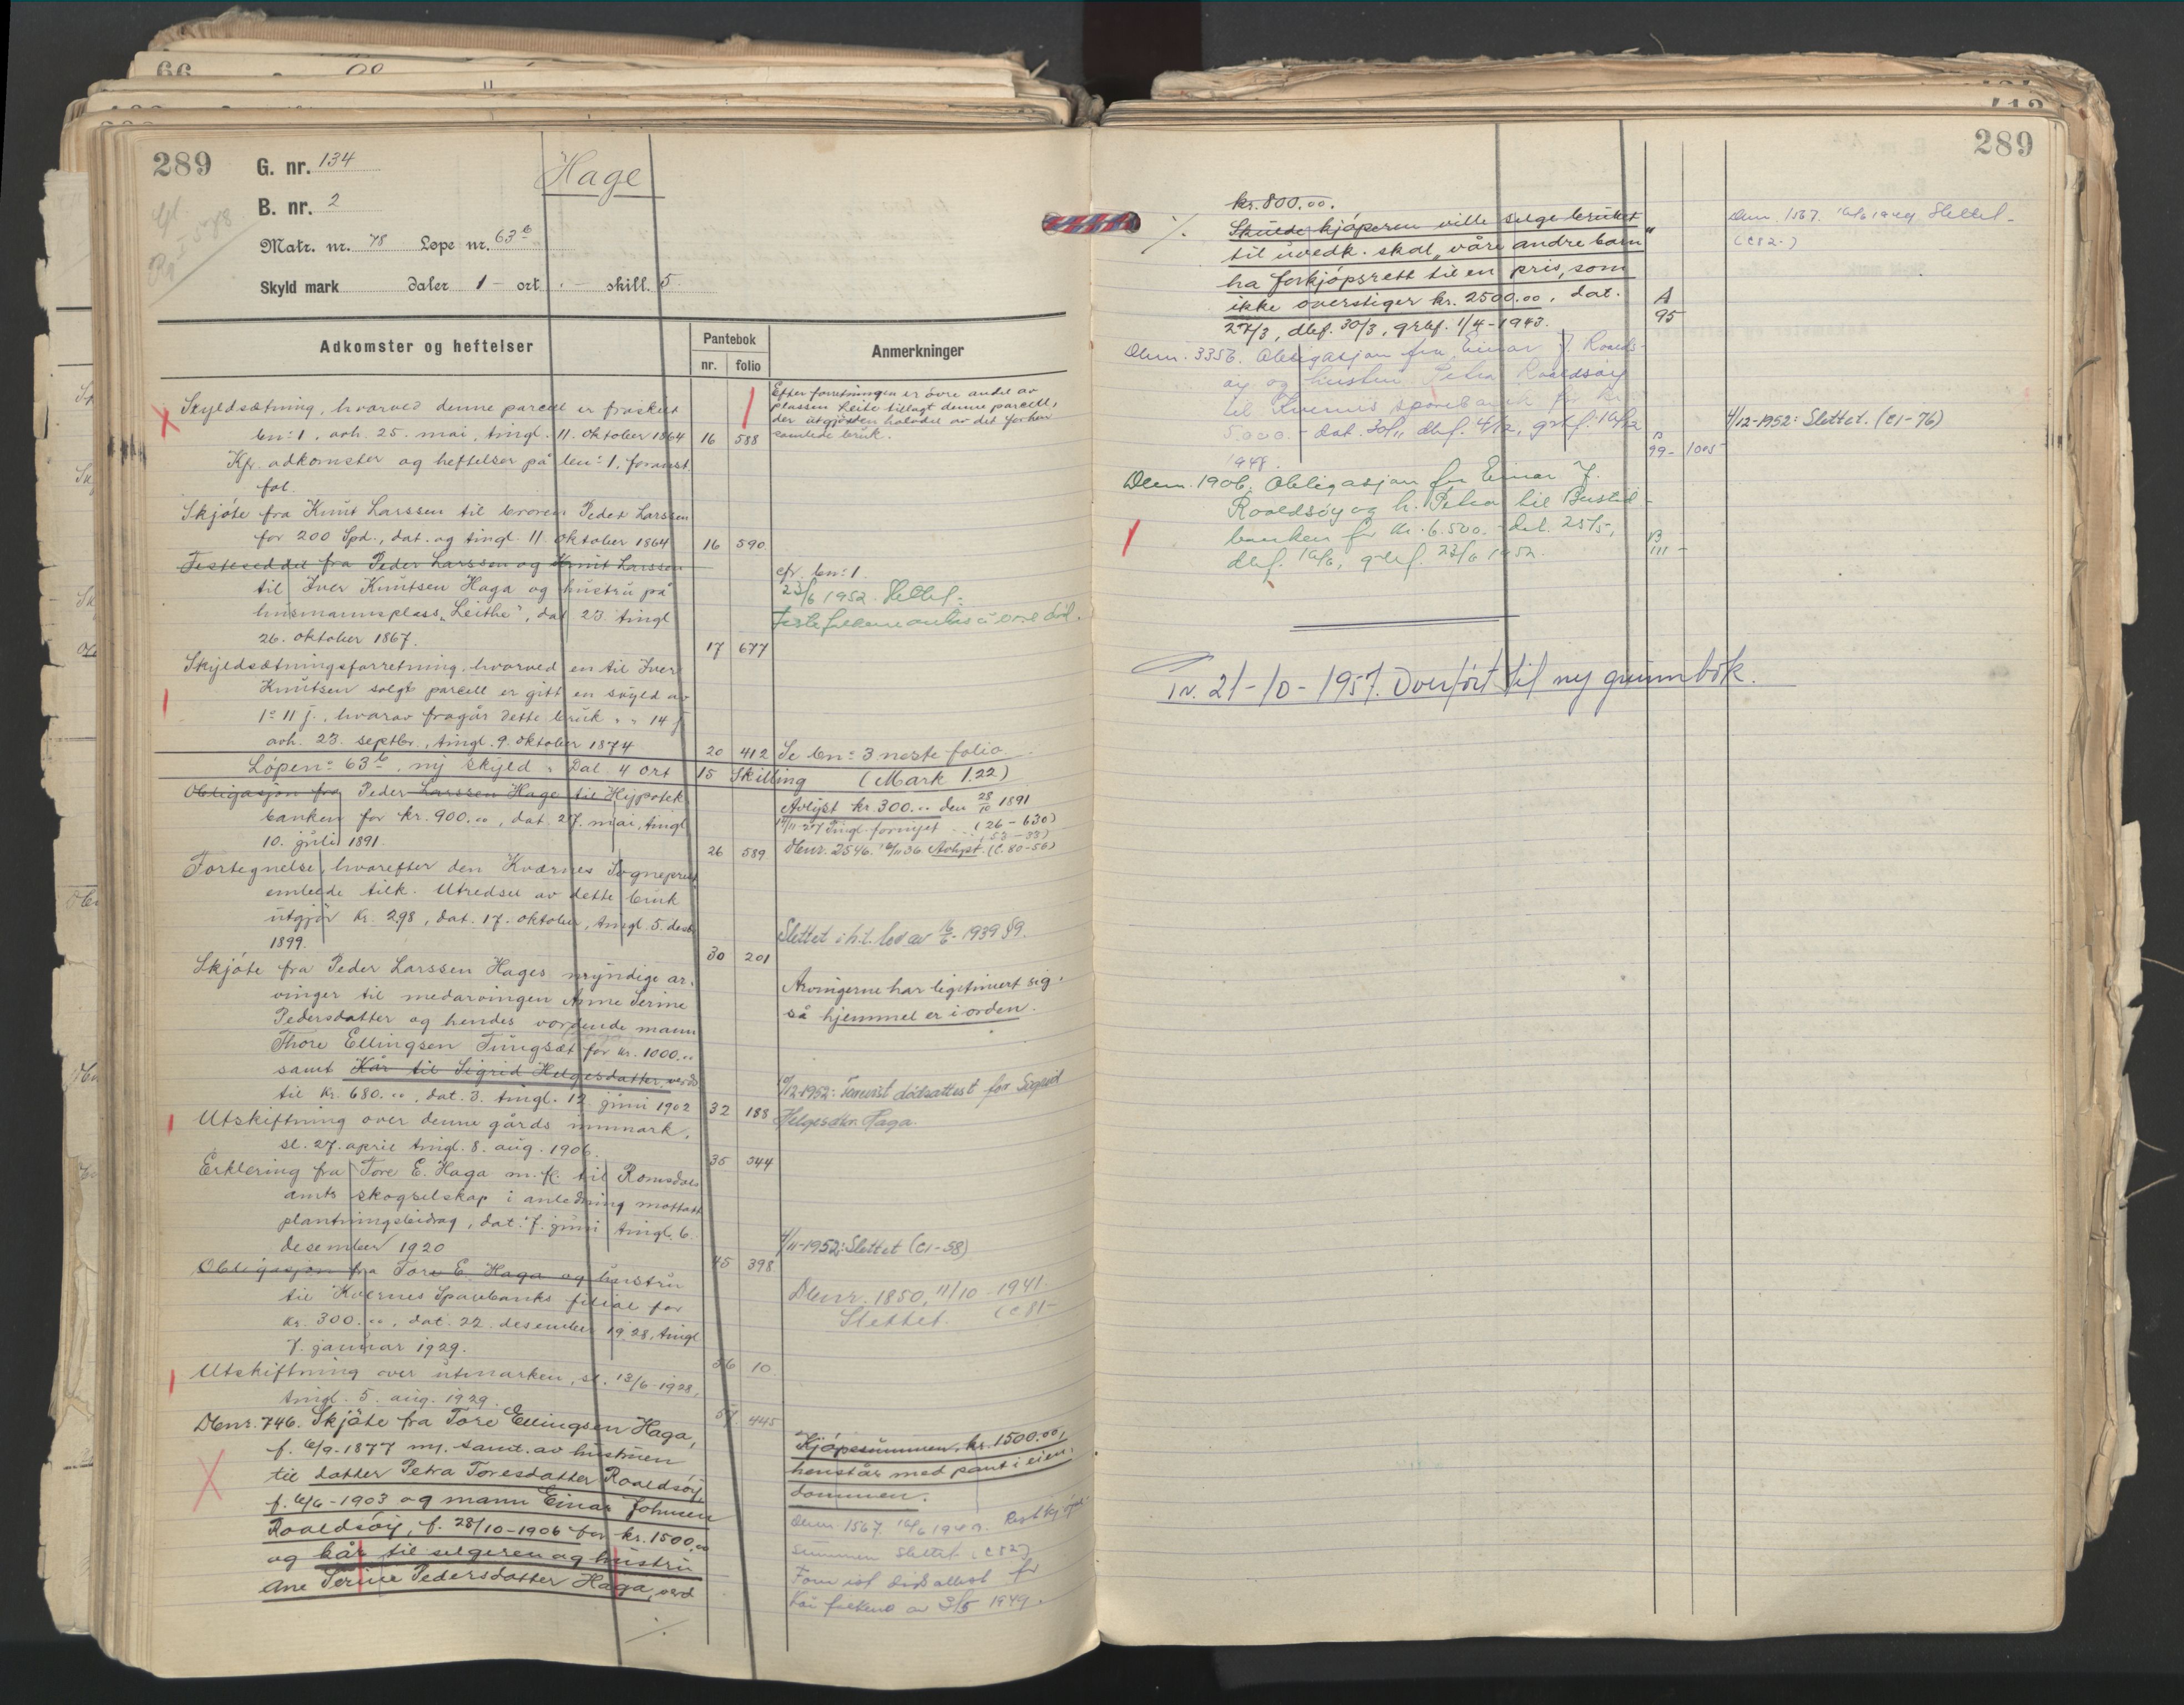 289
G. nr. 134
Hage
B. nr. 2
Matr. nr. 78 Løpe nr. 63b
Skyld mark daler 1 - ort - skill. 5
Adkomster og heftelser
Pantebok
nr. folio
Anmerkninger
Skyldsætning, hvorved denne parcell er fraskilt
bn: 1, avh. 25. mai, tingl. 11. oktober 1864 16 588
Efter forretningen er övre andel av
plassen Leite tillagt denne parcell,
der utgjorden halvdel av det forhen
samlede bruk.
Kfr. adkomster og heftelser på bn: 1, foranst.
fol.
Skjöte fra Knut Larssen til broren Peder Larssen
for 200 Spd., dat. og tingl. 11. oktober 1864 16 590
Festeseddel fra Peder Larssen og Knut Larssen
til Iver Knutsen Haga og hustru på
husmannsplass "Leithe", dat. 23. tingl.
26. oktober 1867. 17 677
cfr. bn: 1.
23/6 1952. Slettet.
Festefolkene antas å være död.
Skyldsætningsforretning, hvorved en til Iver
Knutsen solgt parcell er gitt en skyld av
1 ö 11 j., hvorav fragår dette bruk " " 14 j
avh. 23. septbr., tingl. 9. oktober 1874 20 412 Se bn: 3 neste folio.
Löpen: 63b, ny skyld " Dal. 4 ort 15 Skilling (Mark 1.22)
Obligasjon fra Peder Larssen Hage til Hypotek-
banken for kr. 900.00, dat. 27. mai, tingl.
10. juli 1891. 26 589
Avlyst kr. 300.00 den 28/10 1891
(26-630)
Tingl. fornyet (53-33)
Dbnr. 2546. 16/11 36 Avlyst. (C. 80-56)
Fortegnelse, hvorefter den Kvernes Sogneprest-
embede tilk. Utredsel av dette bruk
utgjör kr. 2.98, dat. 17. oktober, tingl. 5. desbr.
1899. 30 201
Slettet i h.t. lov av 16/6-1939 §9.
Skjöte fra Peder Larssen Hages myndige ar-
vinger til medarvingen Anne Serine
Pedersdatter og hendes vordende mann
Thore Ellingsen Tungsæt for kr. 1000.00
samt Kår til Sigrid Helgesdatter, verd
til kr. 680.00, dat. 3. tingl. 12. juni 1902 32 188
Arvingerne har legitimert sig,
så hjemmel er i orden.
10/12-1952: Forevist dödsattest for Sigrid
Helgesdtr. Haga.
Utskiftning over denne gårds innmark,
sl. 27. april tingl. 8. aug. 1906. 35 344
Erklering fra Tore E. Haga m. fl. til Romsdals
amts skogselskap i anledning mottatt
plantningsbidrag, dat. 7. juni tingl. 6.
desember 1920 45 398
4/11-1952: Slettet (C1-58)
Obligasjon fra Tore E. Haga og hustru
til Kvernes Sparebanks filial for
kr. 300.00, dat. 22. desember 1928, tingl.
7. januar 1929. 56 10
Dbnr. 1850, 11/10-1941.
Slettet. (C81-
Utskiftning over utmarken, sl. 13/6-1928,
tingl. 5. aug. 1929. 57 445
Dbnr. 746. Skjöte fra Tore Ellingsen Haga,
f. 6/9-1877 m. samt. av hustruen
til datter Petra Toresdatter Roaldsöy
f. 6/6-1903 og mann Einar Johnsen
Roaldsöy, f. 28/10-1906 for kr. 1500.00
og kår til selgeren og hustru
Ane Serine Pedersdatter Haga, verd
./.
Kjöpesummen, kr. 1500.00,
henstår med pant i eien-
dommen.
Dbnr. 1567. 16/6 1949. Restkjöpe-
summen slettet. (C82)
Forevist dödsattest for
kårfolkene av 3/5 1949.
289
kr. 800.00.
./. Skulde kjöperen ville selge bruket
til uvedk. skal "våre andre barn"
ha forkjöpsrett til en pris, som
ikke overstiger kr. 2500.00, dat.
27/3, dbf. 30/3, grbf. 1/4-1943. A 95
Dbnr. 1567. 16/6 1949 Slettet.
(C82-)
Dbnr. 3356. Obligasjon fra Einar J. Roalds-
öy og hustru Petra Roaldsöy
til Kvernes sparebank for kr.
5.000.- dat. 30/11 dbf. 4/12, grbf. 10/12
1948. B 99 - 1005
4/12-1952: Slettet. (C1-76)
Dbnr. 1906. Obligasjon fra Einar J.
Roaldsöy og h. Petra til Bustad-
banken for kr. 6.500.- dat. 25/5,
dbf. 16/6, grbf. 23/6 1952. B 111 -
Tv. 21-10-1957. Overfört til ny grunnbok.